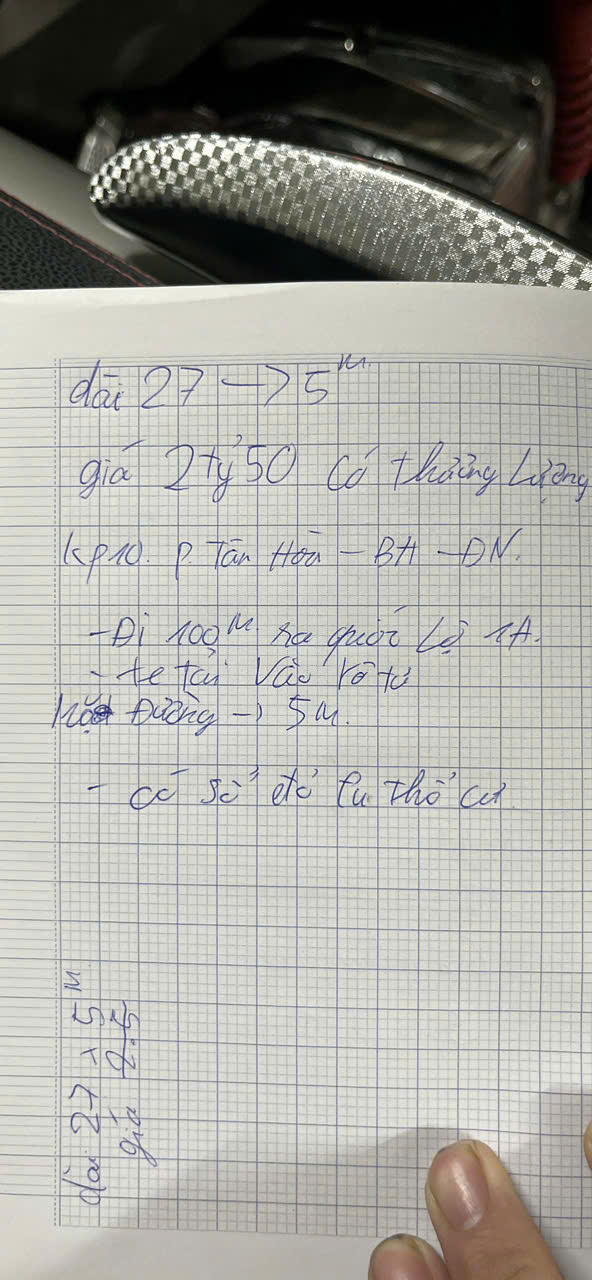 dài 27 → 5 M.
giá 2 tỷ 50 Có thương Lượng
Kp10. P. Tân Hòa - BH - ĐN.
- Đi 100 M ra quốc Lộ 1A.
- te tải Vào Vô tư
Đường → 5M.
- có sổ đỏ thổ cư
dài 27 → 5 M
giá 2.5